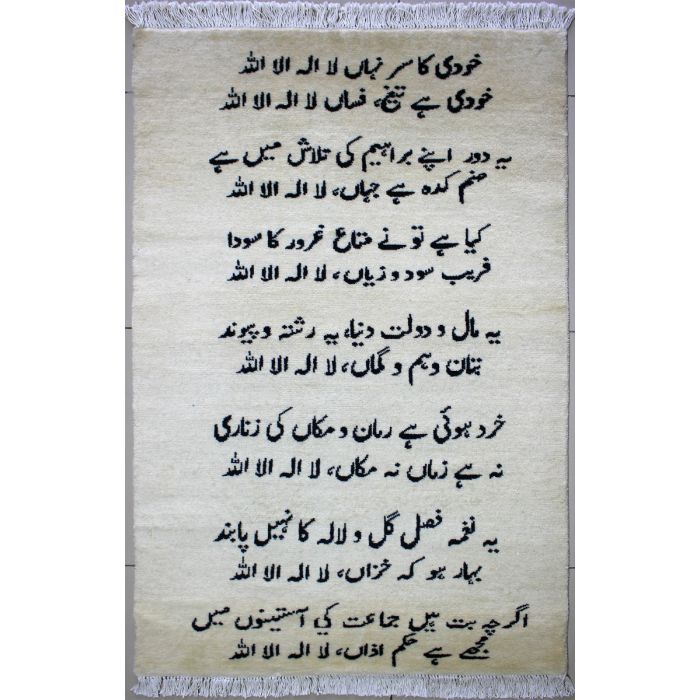 خودی کا سر نہاں لا الہ الا اللہ
خودی ہے تیغ، فساں لا الہ الا اللہ
یہ دور اپنے براہیم کی تلاش میں ہے
صنم کدہ ہے جہاں، لا الہ الا اللہ
کیا ہے تو نے متاع غرور کا سودا
فریب سود و زیاں، لا الہ الا اللہ
یہ مال و دولت دنیا، یہ رشتہ و پیوند
بتان وہم و گماں، لا الہ الا اللہ
خرد ہوئی ہے زمان و مکاں کی زناری
نہ ہے زماں نہ مکاں، لا الہ الا اللہ
یہ نغمہ فصل گل و لالہ کا نہیں پابند
بہار ہو کہ خزاں، لا الہ الا اللہ
اگرچہ بت ہیں جماعت کی آستینوں میں
مجھے ہے حکم اذاں، لا الہ الا اللہ